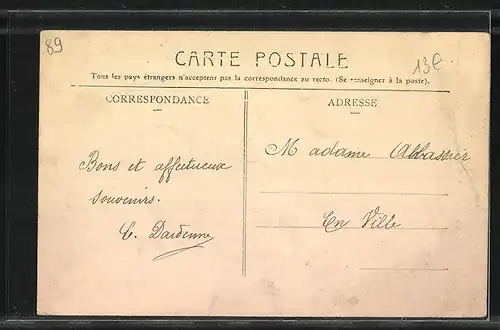 89
CARTE POSTALE
13€
Tous les pays étrangers n'acceptent pas la correspondance au recto. (Se renseigner à la poste).
CORRESPONDANCE
ADRESSE
Bons et affectueux
souvenirs.
Madame
En Ville